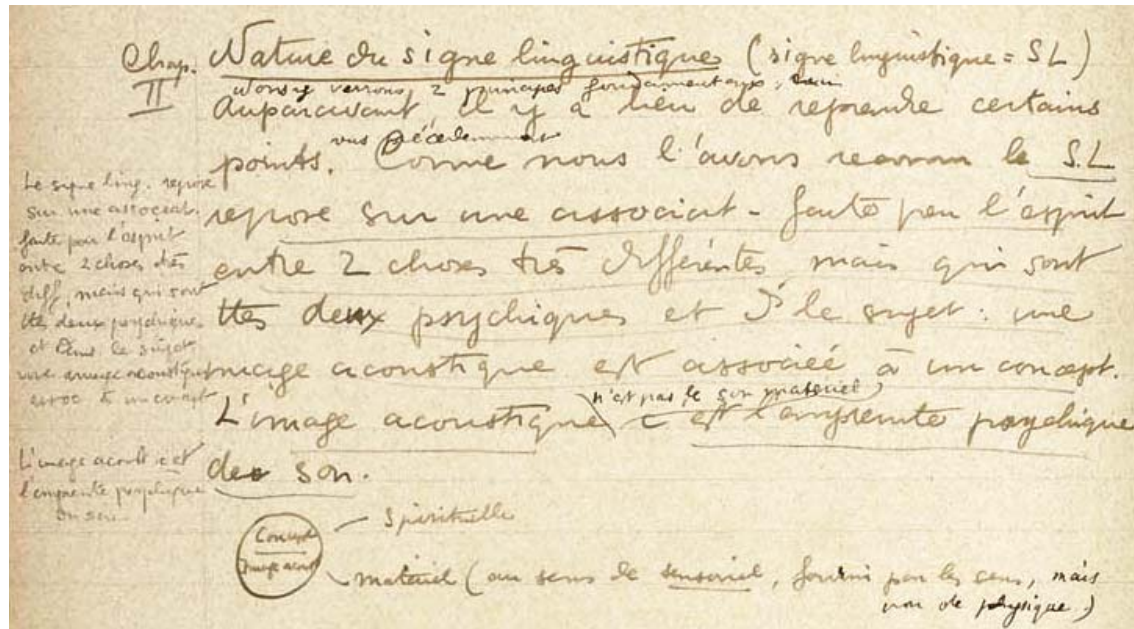 Chap. II
Nature du signe linguistiques (signe linguistique = SL)
verrons 2 principes fondamentaux,
Auparavant il y a lieu de reprendre certains
vus précédemment
points. Comme nous l'avons reconnu le S.L
repose sur une associat- faite par l'esprit
entre 2 choses très différentes, mais qui sont
ttes deux psychiques et ds le sujet : une
image acoustique est associée à un concept.
(n'est pas le son matériel)
L'image acoustique c est l'empreinte psychique
de son.
Le signe ling. repose
sur une associat.
faite par l'esprit
entre 2 choses très
diff, mais qui sont
ttes deux psychiques
et dans le sujet
une image acoustique
assoc à un concept
L'image acoust c est
l'empreinte psychique
du son
Concept
Image acoust
Spirituelle
matériel (au sens de sensoriel, fourni par les sens, mais
non de physique.)